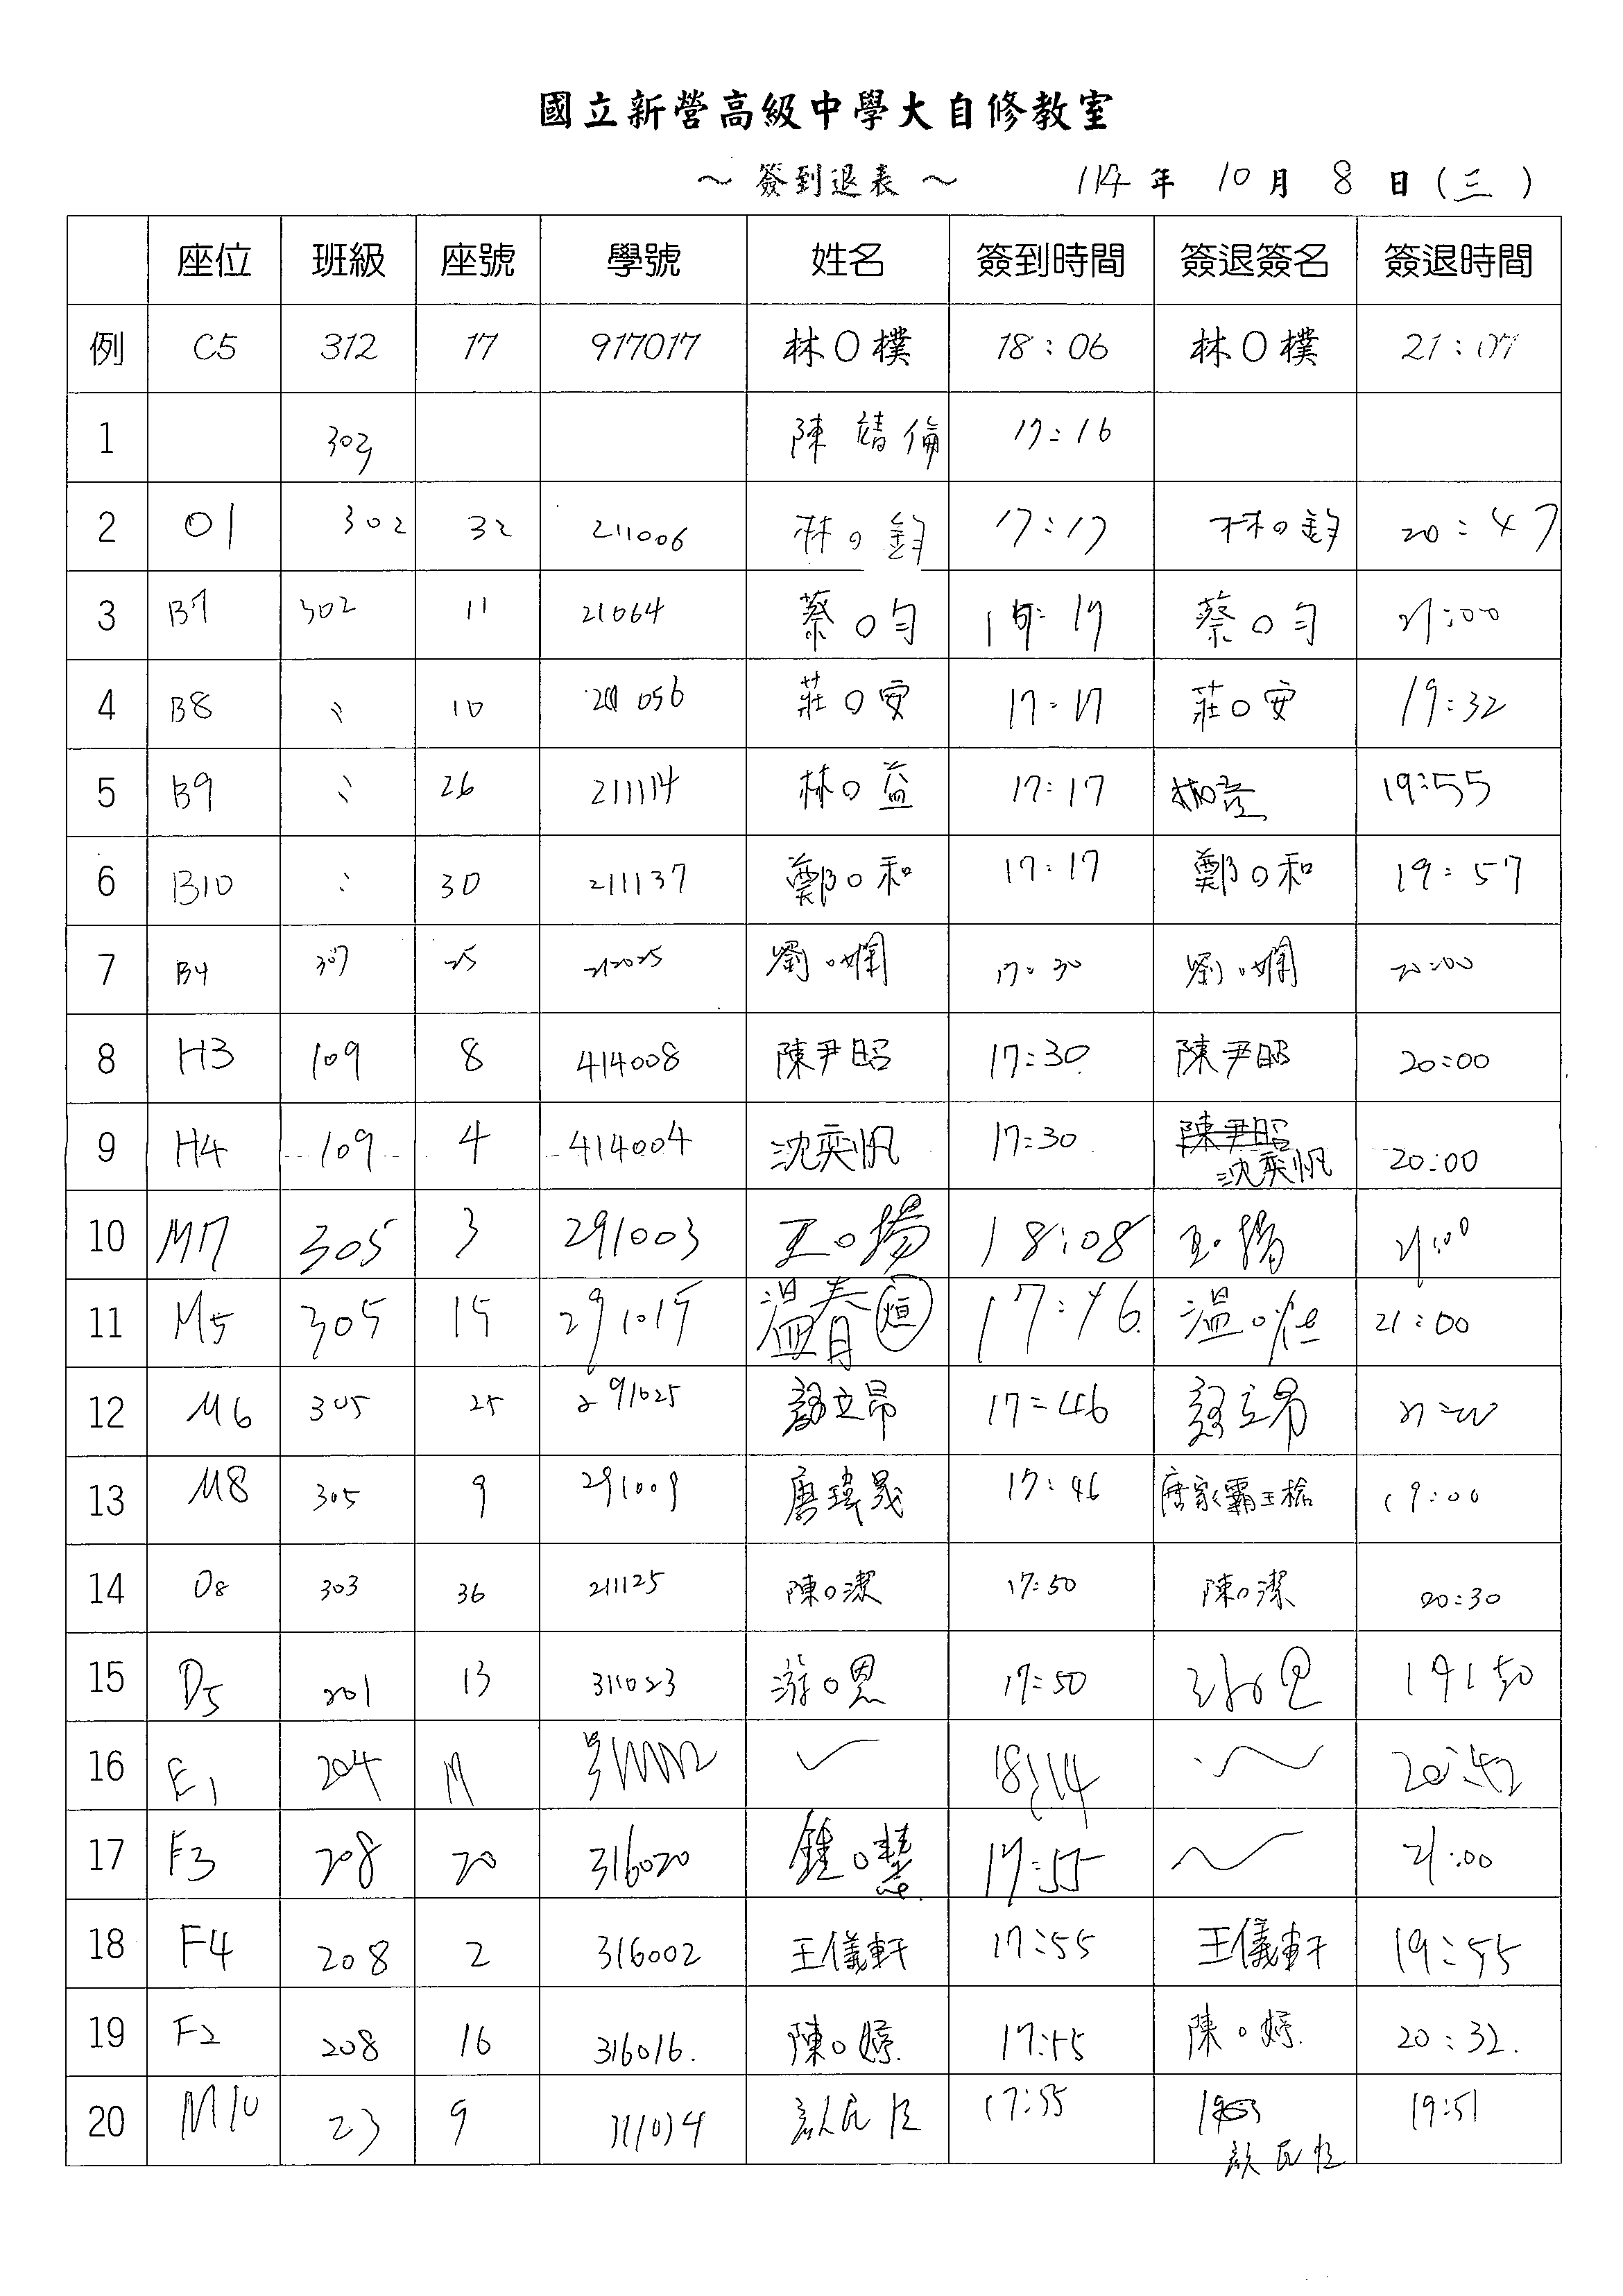 國立新營高級中學大自修教室
～ 簽到退表 ～ 114 年 10 月 8 日 (三)
座位 班級 座號 學號 姓名 簽到時間 簽退簽名 簽退時間
例 C5 312 17 917017 林〇樸 18:06 林〇樸 21:07
1 303 陳靖倫 17:16
2 O1 302 32 211006 林〇鈞 17:17 林〇鈞 20:47
3 B7 302 11 21064 蔡〇勻 17:17 蔡〇勻 21:00
4 B8 〃 10 211056 莊〇安 17:17 莊〇安 19:32
5 B9 〃 26 211114 林〇益 17:17 林〇益 19:55
6 B10 〃 30 211137 鄭〇和 17:17 鄭〇和 19:57
7 B4 307 25 212025 劉〇嫻 17:30 劉〇嫻 20:00
8 H3 109 8 414008 陳尹昭 17:30 陳尹昭 20:00
9 H4 109 4 414004 沈奕帆 17:30 陳尹昭 沈奕帆 20:00
10 M7 305 3 291003 王〇揚 18:08 王〇揚 21:00
11 M5 305 15 291015 溫春烜 17:46 溫〇烜 21:00
12 M6 305 25 291025 顏立昂 17:46 顏立昂 21:00
13 M8 305 9 291009 唐瑋晟 17:46 唐家霸王槍 19:00
14 O8 303 36 211125 陳〇潔 17:50 陳〇潔 20:30
15 D5 201 13 311023 游〇恩 17:50 游〇恩 19:50
16 E1 204 18:14 20:42
17 F3 208 20 316020 鍾〇慧 17:55 21:00
18 F4 208 2 316002 王儀軒 17:55 王儀軒 19:55
19 F2 208 16 316016. 陳〇婷. 17:55 陳〇婷. 20:32.
20 M10 23 9 17:55 19:51